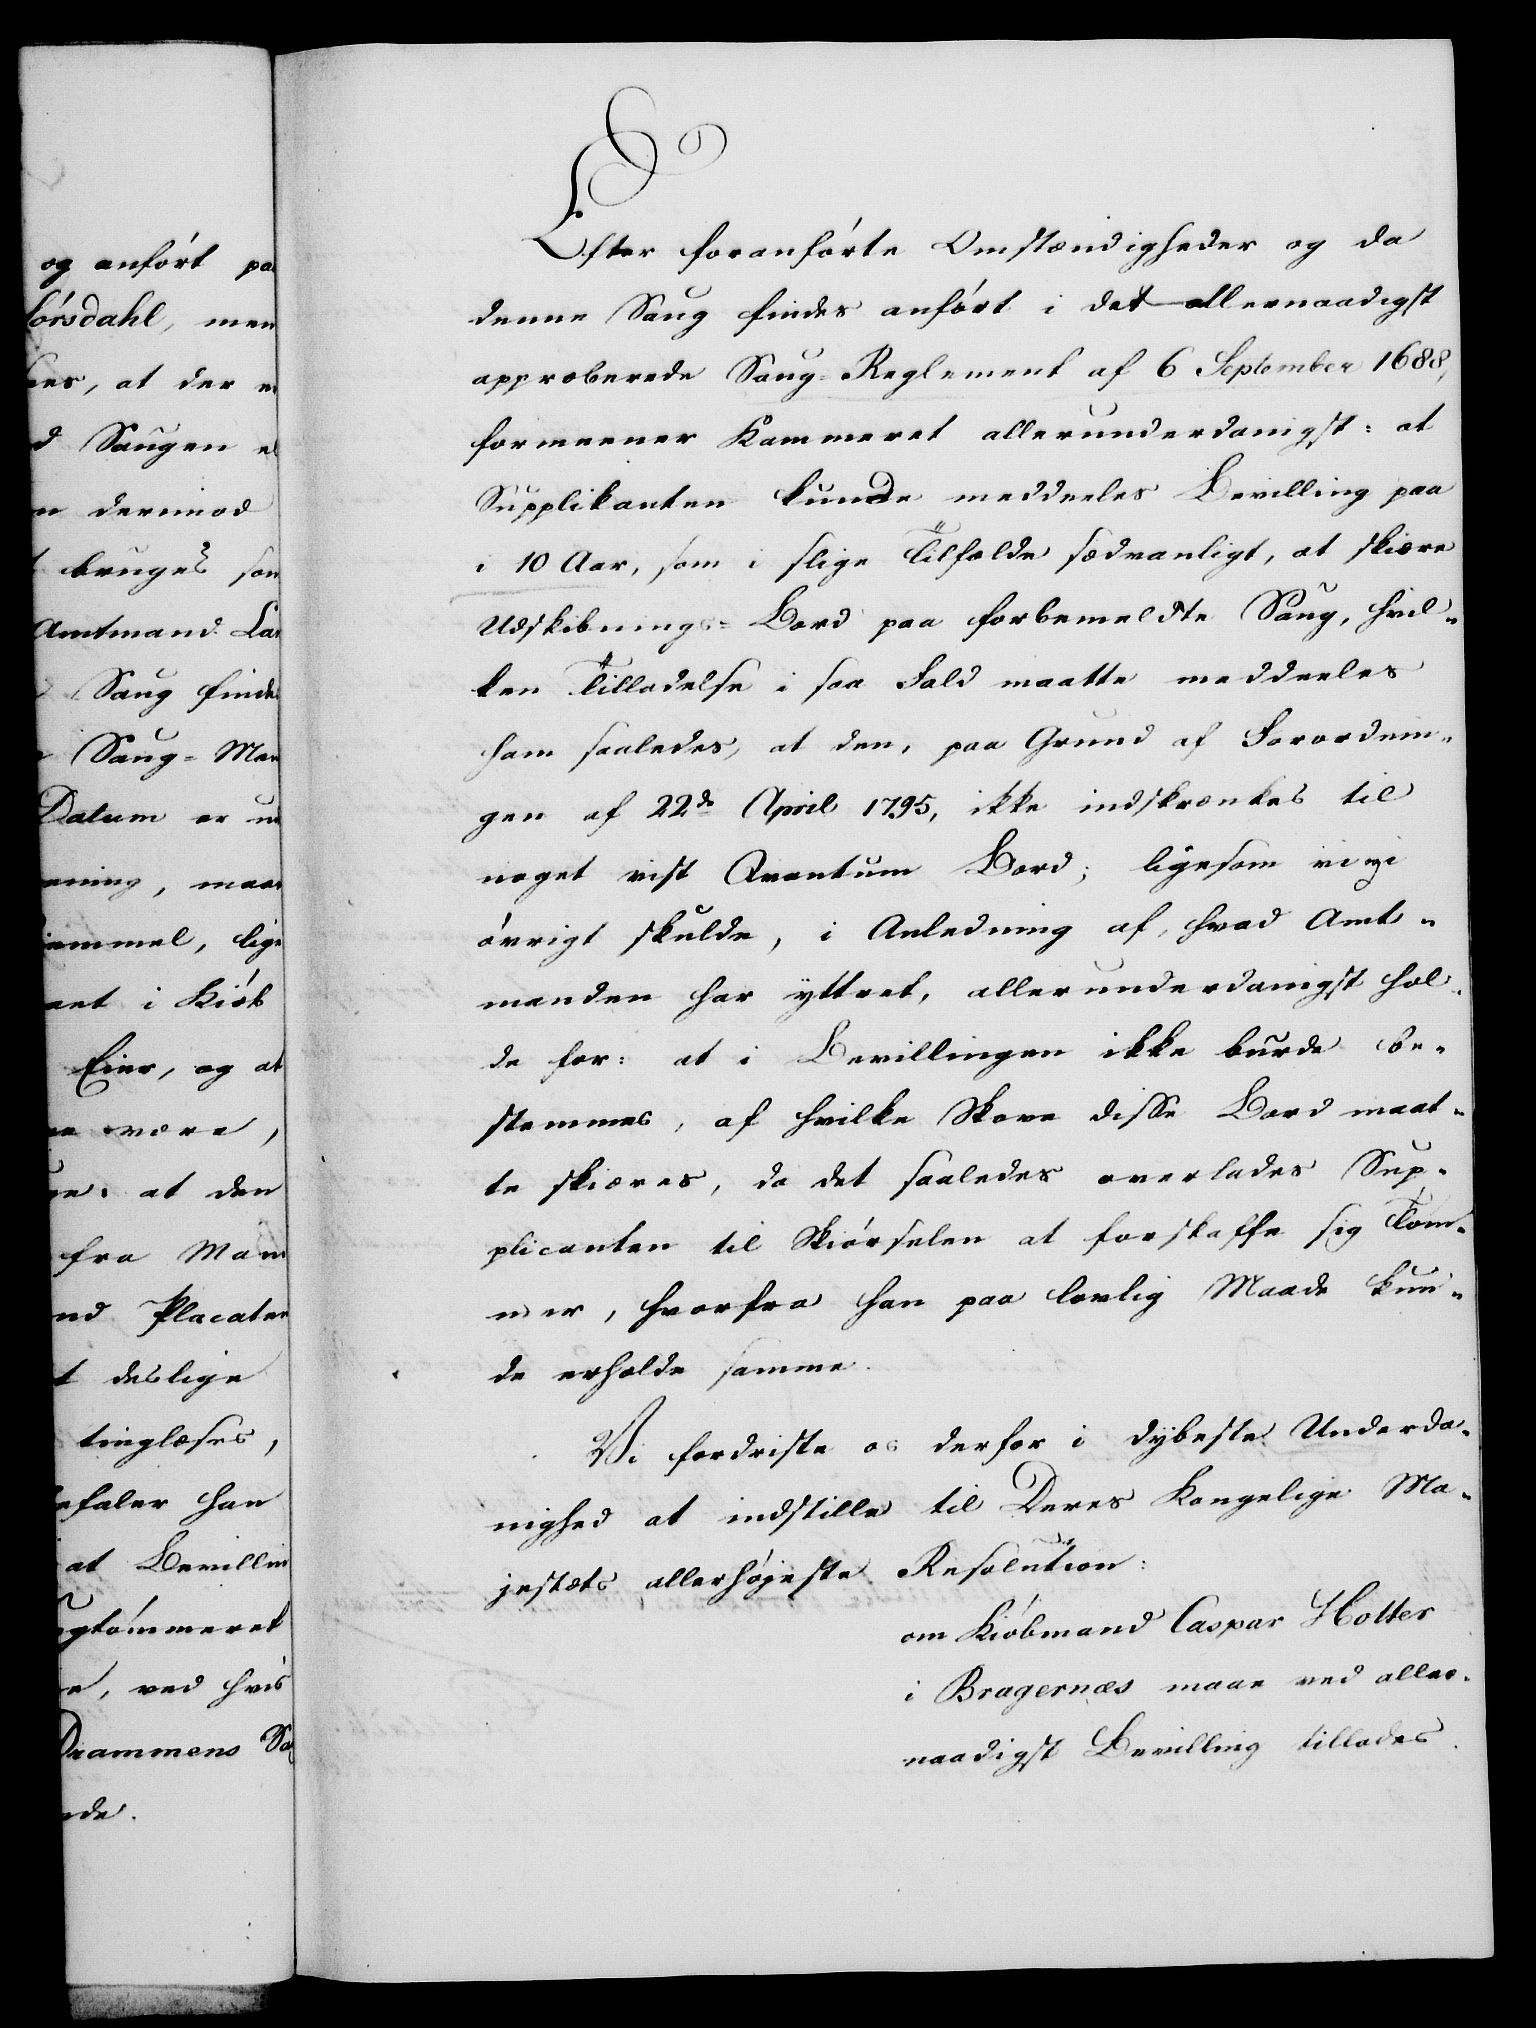 og anført paa
førsdahl, men
nes, at der er
d Saugen el
n derimod
bruges som
Amtmand Lar
Saug findes
Saug-Man
Datum er un
ening, maat
ammel, lige
aet i Kiøb
Eier, og at
være,
ne: at den
fra Man
nd Placater
t deslige
tinglæses,
efaler han
at Bevillin
ugtømmeret
e, ved hvis
Drammens So
nde.
Efter foranførte Omstændigheder og da
denne Saug findes anført i det allernaadigst
approberede Saug-Reglement af 6 September 1688,
formeener Kammeret allerunderdanigst: at
Supplikanten kunde meddeeles Bevilling paa
i 10 Aar, som i slige Tilfælde sædvanligt, at skiære
Udskibnings-Bord paa forbemeldte Saug, hvil-
ken Tilladelse i saa Fald maatte meddeeles
ham saaledes, at den, paa Grund af Forordnin-
gen af 22de April 1795, ikke indskrænkes til
noget vist Qvantum Bord; ligesom vi og i
øvrigt skulde, i Anledning af, hvad Amt-
manden har yttret, allerunderdanigst hol-
de for: at i Bevillingen ikke burde be-
stemmes, af hvilke Skove disse Bord maat-
te skiæres, da det saaledes overlades Sup-
plicanten til Skiørselen at forskaffe sig Tøm-
mer, hvorfra han paa lovlig Maade kun-
de erholde samme.
Vi fordriste os derfor i dybeste Underda-
nighed at indstille til Deres Kongelige Ma-
jestæts allerhøjeste Resolution:
om Kiøbmand Caspar Holter
i Bragernæs maae ved aller-
naadigst Bevilling tillades